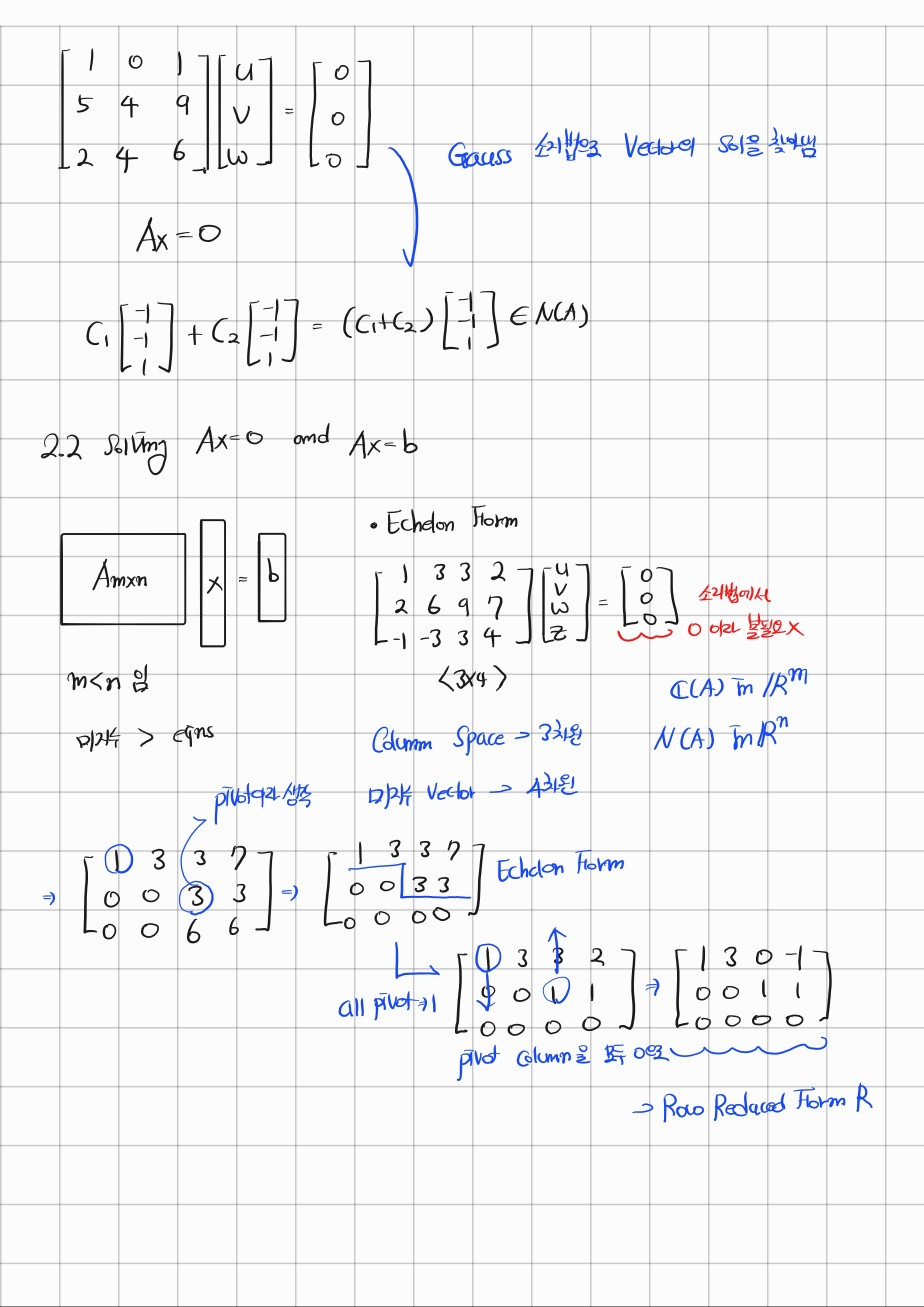 [1 0 1; 5 4 9; 2 4 6] [u; v; w] = [0; 0; 0]
Gauss 소거법으로 Vector의 해을 찾아냄
Ax = 0
C₁ [-1; -1; 1] + C₂ [-1; -1; 1] = (C₁+C₂) [-1; -1; 1] ∈ N(A)
2.2 Solving Ax=0 and Ax=b
Amxn x = b
• Echelon Form
[1 3 3 2; 2 6 9 7; -1 -3 3 4] [u; v; w; z] = [0; 0; 0]
소거법에서
0 이라 쓸필요X
m<n 임
<3x4>
ℂ(A) in ℝᵐ
미지수 > eqns
Column Space → 3차원
N(A) in ℝⁿ
pivot이라 생각
미지수 Vector → 4차원
⇒ [1 3 3 7; 0 0 3 3; 0 0 6 6] ⇒ [1 3 3 7; 0 0 3 3; 0 0 0 0] Echelon Form
all pivot→1
[1 3 3 2; 0 0 1 1; 0 0 0 0] ⇒ [1 3 0 -1; 0 0 1 1; 0 0 0 0]
pivot column을 모두 0으로
→ Row Reduced Form R